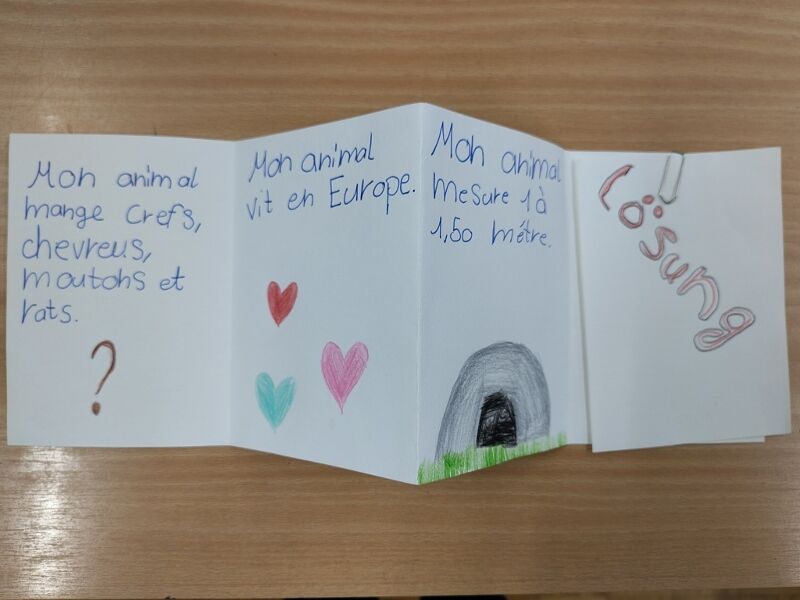 Mon animal
mange Crefs,
chevreus,
moutons et
rats.
?
Mon animal
vit en Europe.
Mon animal
mesure 1 à
1,50 métre.
Lösung